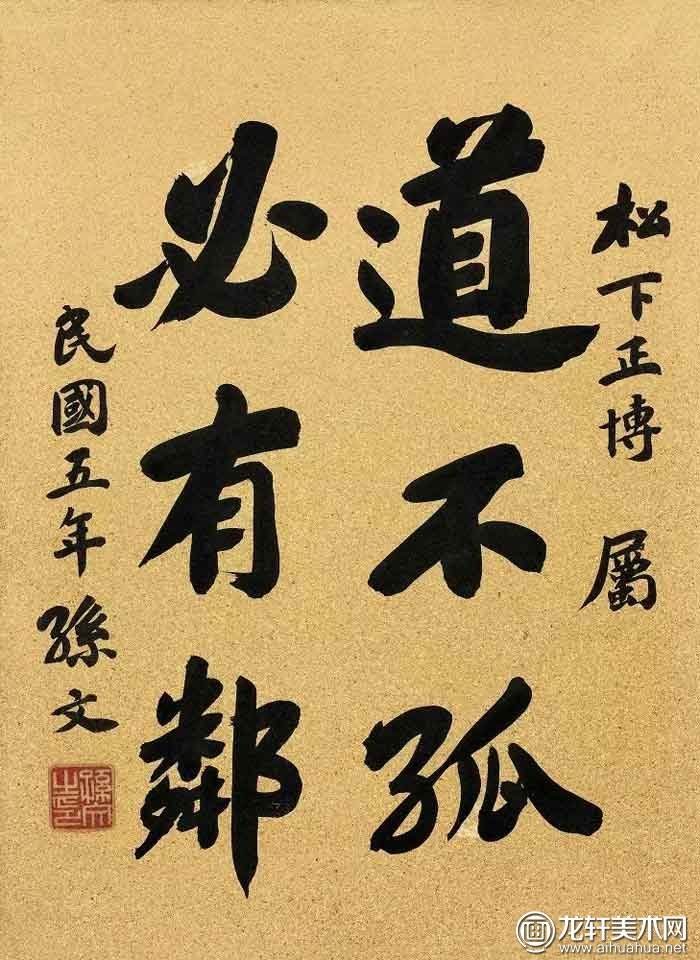 松下正博 屬
道不孤
必有鄰
民國五年 孫文
孫文之印
龙轩美术网
www.aihuahua.net